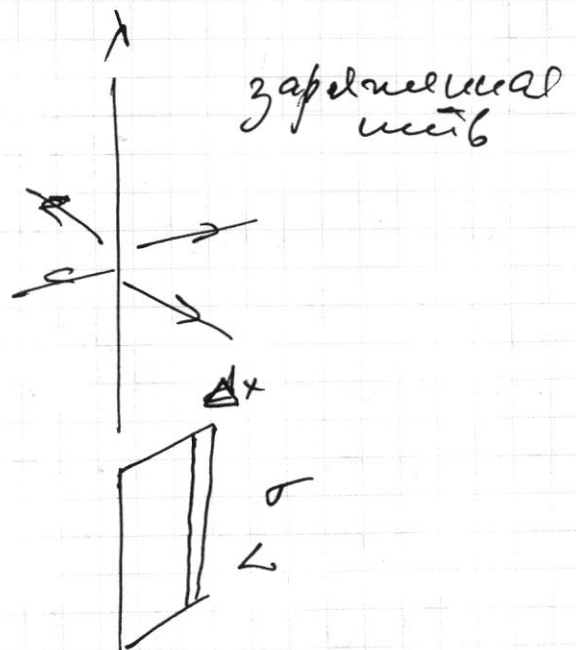 λ
заряженная
нить
Δx
σ
L